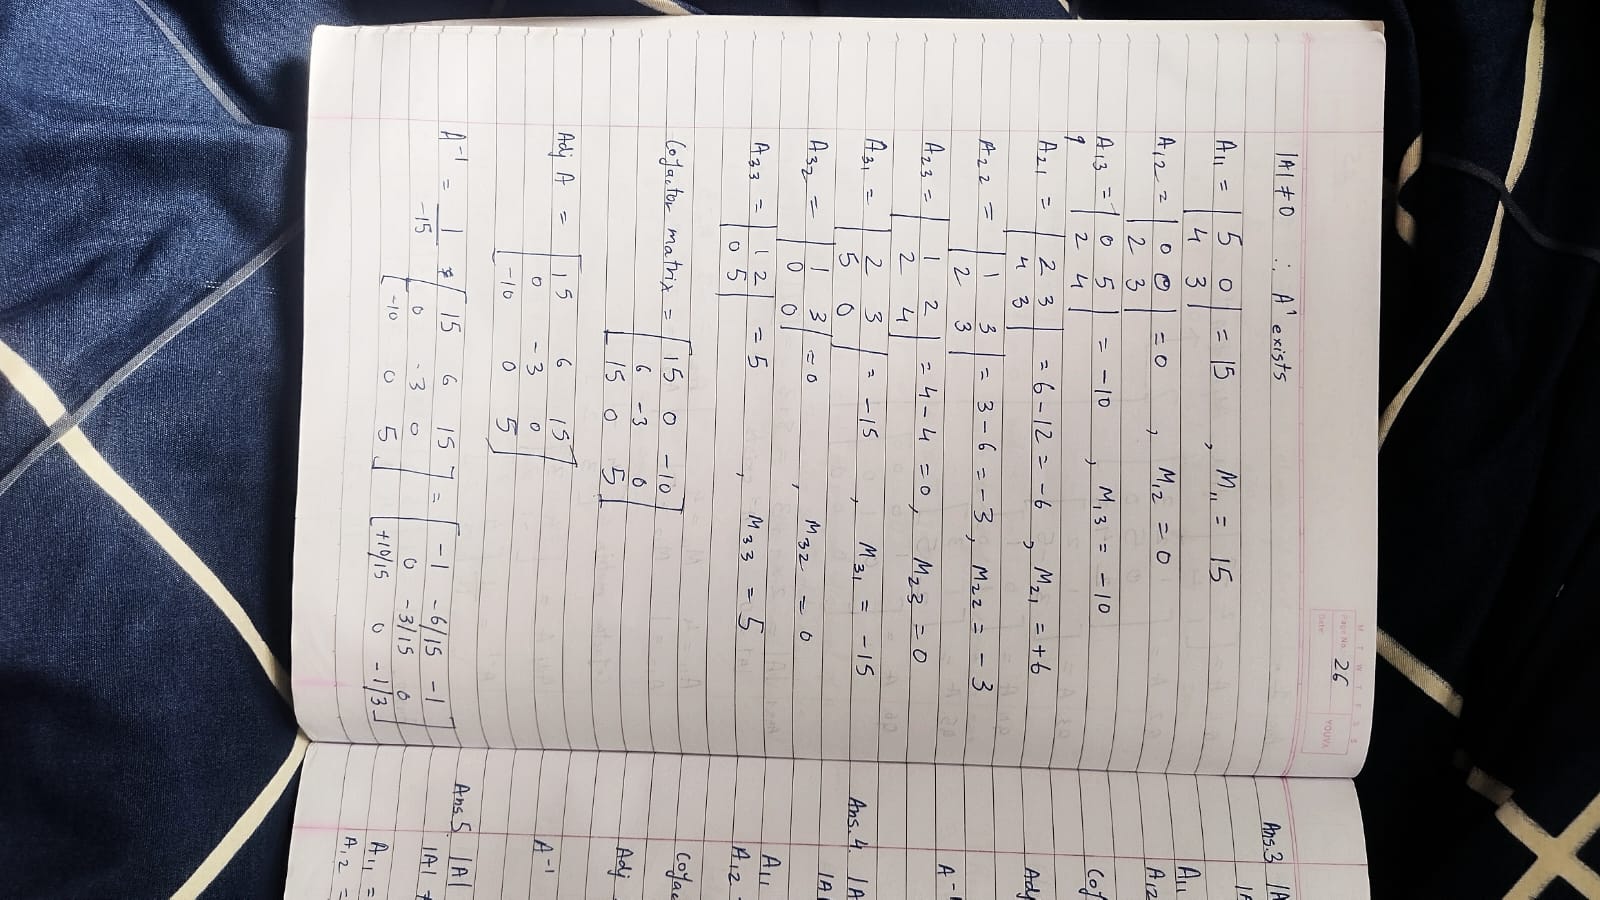 M T W T F S S
Page No. 26
Date:
YOUVA
|A| ≠ 0 ∴ A¹ exists
A11 = | 5 0 | = 15 , M11 = 15
4 3
A12 = | 0 0 | = 0 , M12 = 0
2 3
A13 = | 0 5 | = -10 , M13 = -10
2 4
A21 = | 2 3 | = 6-12 = -6 , M21 = +6
4 3
A22 = | 1 3 | = 3-6 = -3 , M22 = -3
2 3
A23 = | 1 2 | = 4-4 = 0 , M23 = 0
2 4
A31 = | 2 3 | = -15 , M31 = -15
5 0
A32 = | 1 3 | = 0 , M32 = 0
0 0
A33 = | 1 2 | = 5 , M33 = 5
0 5
Cofactor matrix = [ 15 0 -10 ]
6 -3 0
15 0 5
Adj A = [ 15 6 15 ]
0 -3 0
-10 0 5
A-1 = 1/-15 * [ 15 6 15 ] = [ -1 -6/15 -1 ]
0 -3 0 0 -3/15 0
-10 0 5 +10/15 0 -1/3
Ans.3 |A
A11
A12
Cof
Adj
Ans.4. |A
|A|
A11
A12
Cofac
Adj
A-1
Ans 5. |A|
|A| ≠
A11 =
A12 =